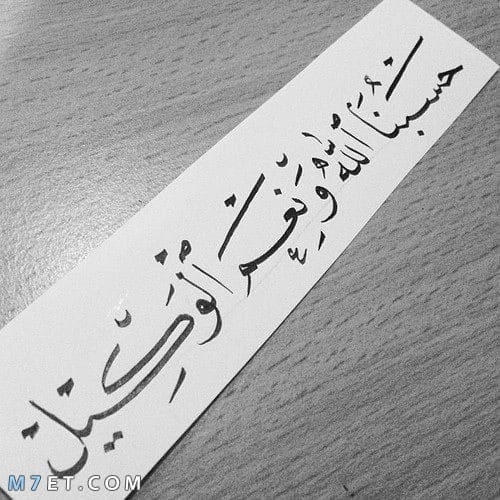 حسبنا اللهُ وَنِعْمَ الْوَكِيل
M7ET.COM